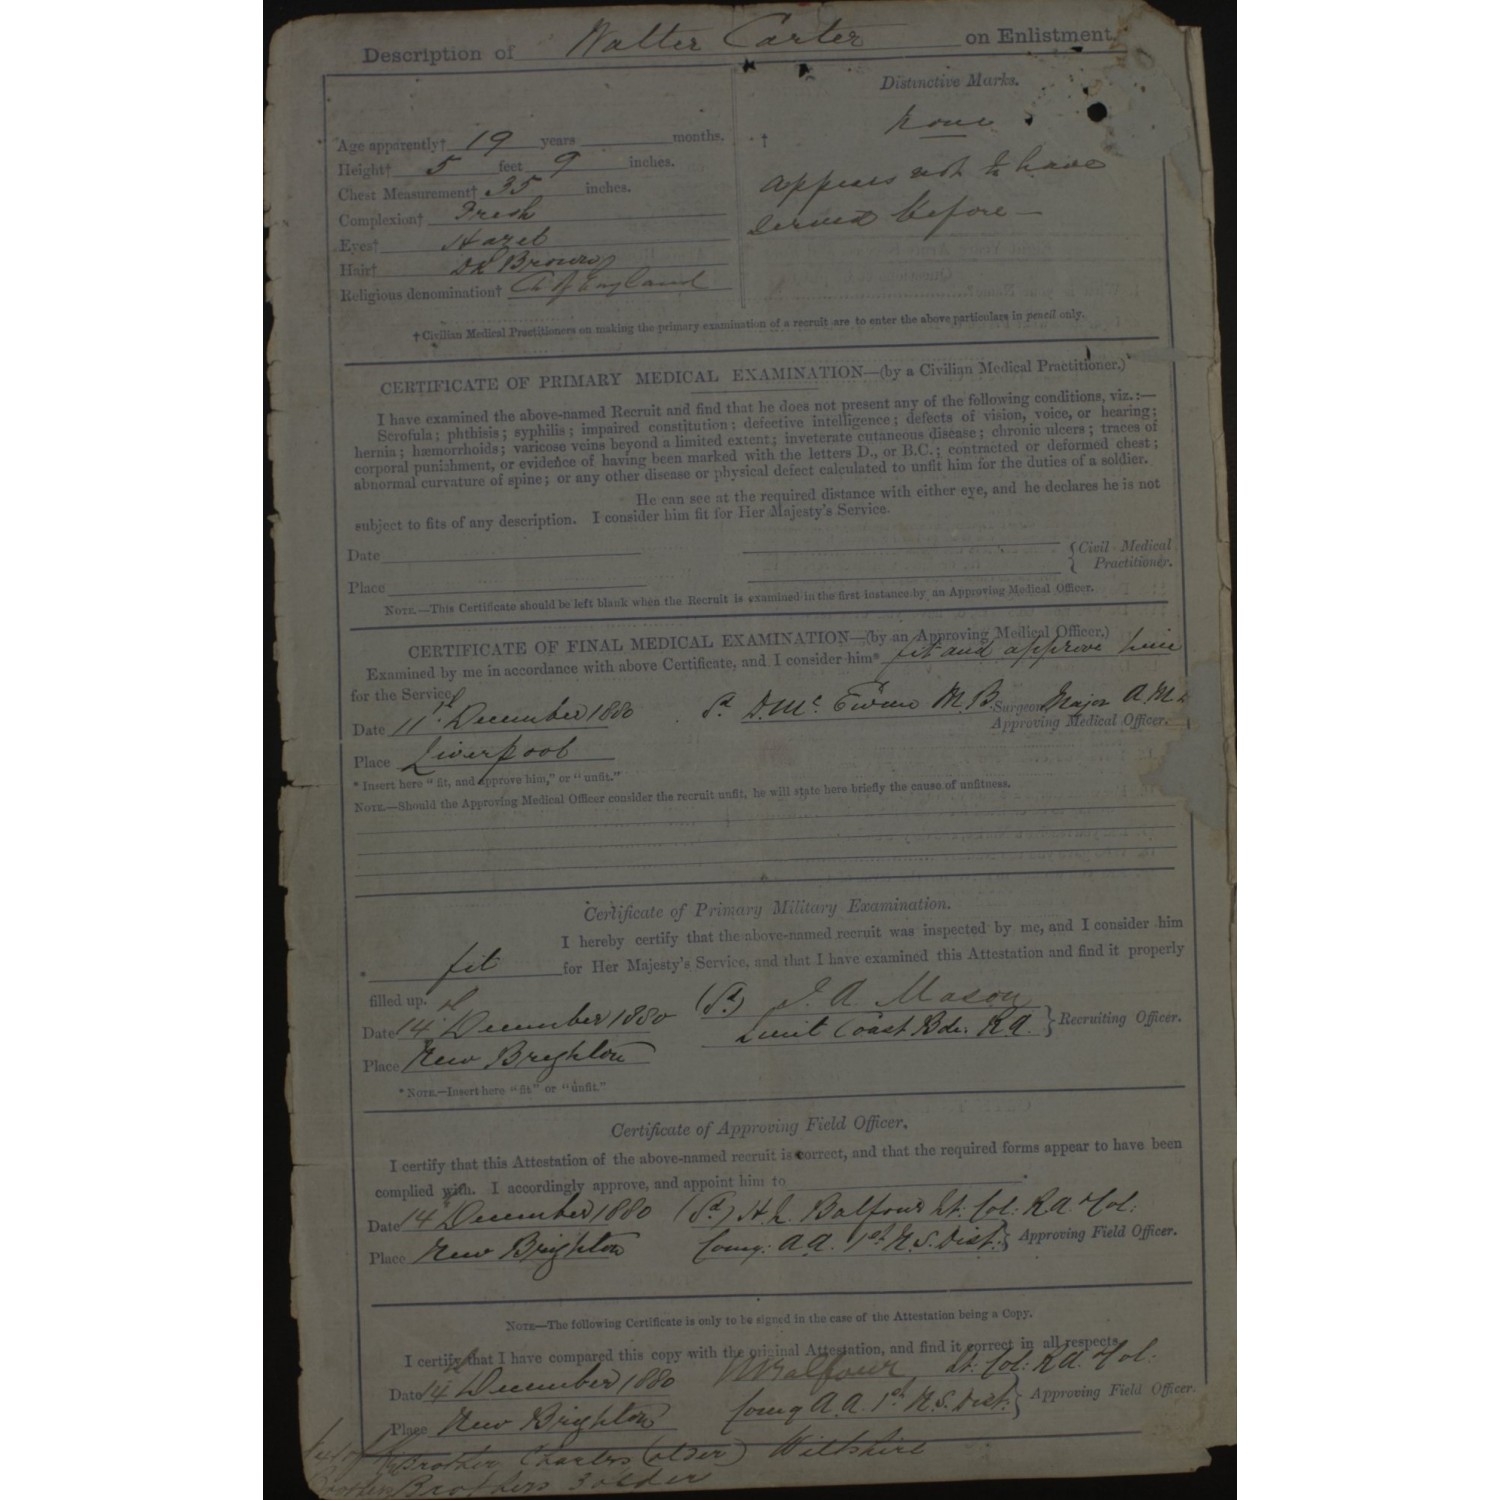 Description of Walter Carter on Enlistment.
Distinctive Marks.
None
Age apparently† 19 years months.
†
Height† 5 feet 9 inches.
appears not to have
Chest Measurement† 35 inches.
Complexion† Fresh
served before —
Eyes† Hazel
Hair† Dk Brown
Religious denomination† Ch of England
† Civilian Medical Practitioners on making the primary examination of a recruit are to enter the above particulars in pencil only.
CERTIFICATE OF PRIMARY MEDICAL EXAMINATION—(by a Civilian Medical Practitioner.)
I have examined the above-named Recruit and find that he does not present any of the following conditions, viz.:—
Scrofula; phthisis; syphilis; impaired constitution; defective intelligence; defects of vision, voice, or hearing;
hernia; hæmorrhoids; varicose veins beyond a limited extent; inveterate cutaneous disease; chronic ulcers; traces of
corporal punishment, or evidence of having been marked with the letters D., or B.C.; contracted or deformed chest;
abnormal curvature of spine; or any other disease or physical defect calculated to unfit him for the duties of a soldier.
He can see at the required distance with either eye, and he declares he is not
subject to fits of any description. I consider him fit for Her Majesty's Service.
Date
{ Civil Medical
Practitioner.
Place
NOTE.—This Certificate should be left blank when the Recruit is examined in the first instance by an Approving Medical Officer.
CERTIFICATE OF FINAL MEDICAL EXAMINATION—(by an Approving Medical Officer.)
Examined by me in accordance with above Certificate, and I consider him* fit and approve him
for the Service.
Date 11 December 1880 Sd D. Mc M.B. Surgeon Major A.M.
Approving Medical Officer.
Place Liverpool
* Insert here "fit, and approve him," or "unfit."
NOTE.—Should the Approving Medical Officer consider the recruit unfit, he will state here briefly the cause of unfitness.
Certificate of Primary Military Examination.
I hereby certify that the above-named recruit was inspected by me, and I consider him
* fit for Her Majesty's Service, and that I have examined this Attestation and find it properly
filled up.
Date 14 December 1880 (Sd) J. A. Mason
Lieut Coast Bde. R.A. } Recruiting Officer.
Place New Brighton
* NOTE.—Insert here "fit" or "unfit."
Certificate of Approving Field Officer.
I certify that this Attestation of the above-named recruit is correct, and that the required forms appear to have been
complied with. I accordingly approve, and appoint him to *
Date 14 December 1880 (Sd) H. L. Balfour Lt. Col: R.A. Col:
Comg: A.A. 1st N.S. Dist. } Approving Field Officer.
Place New Brighton
NOTE—The following Certificate is only to be signed in the case of the Attestation being a Copy.
I certify that I have compared this copy with the original Attestation, and find it correct in all respects.
Date 14 December 1880 Balfour Lt. Col: R.A. Col:
Comg A.A. 1st N.S. Dist. } Approving Field Officer.
Place New Brighton
Brother Charles (older) Wiltshire
Brothers 3 older